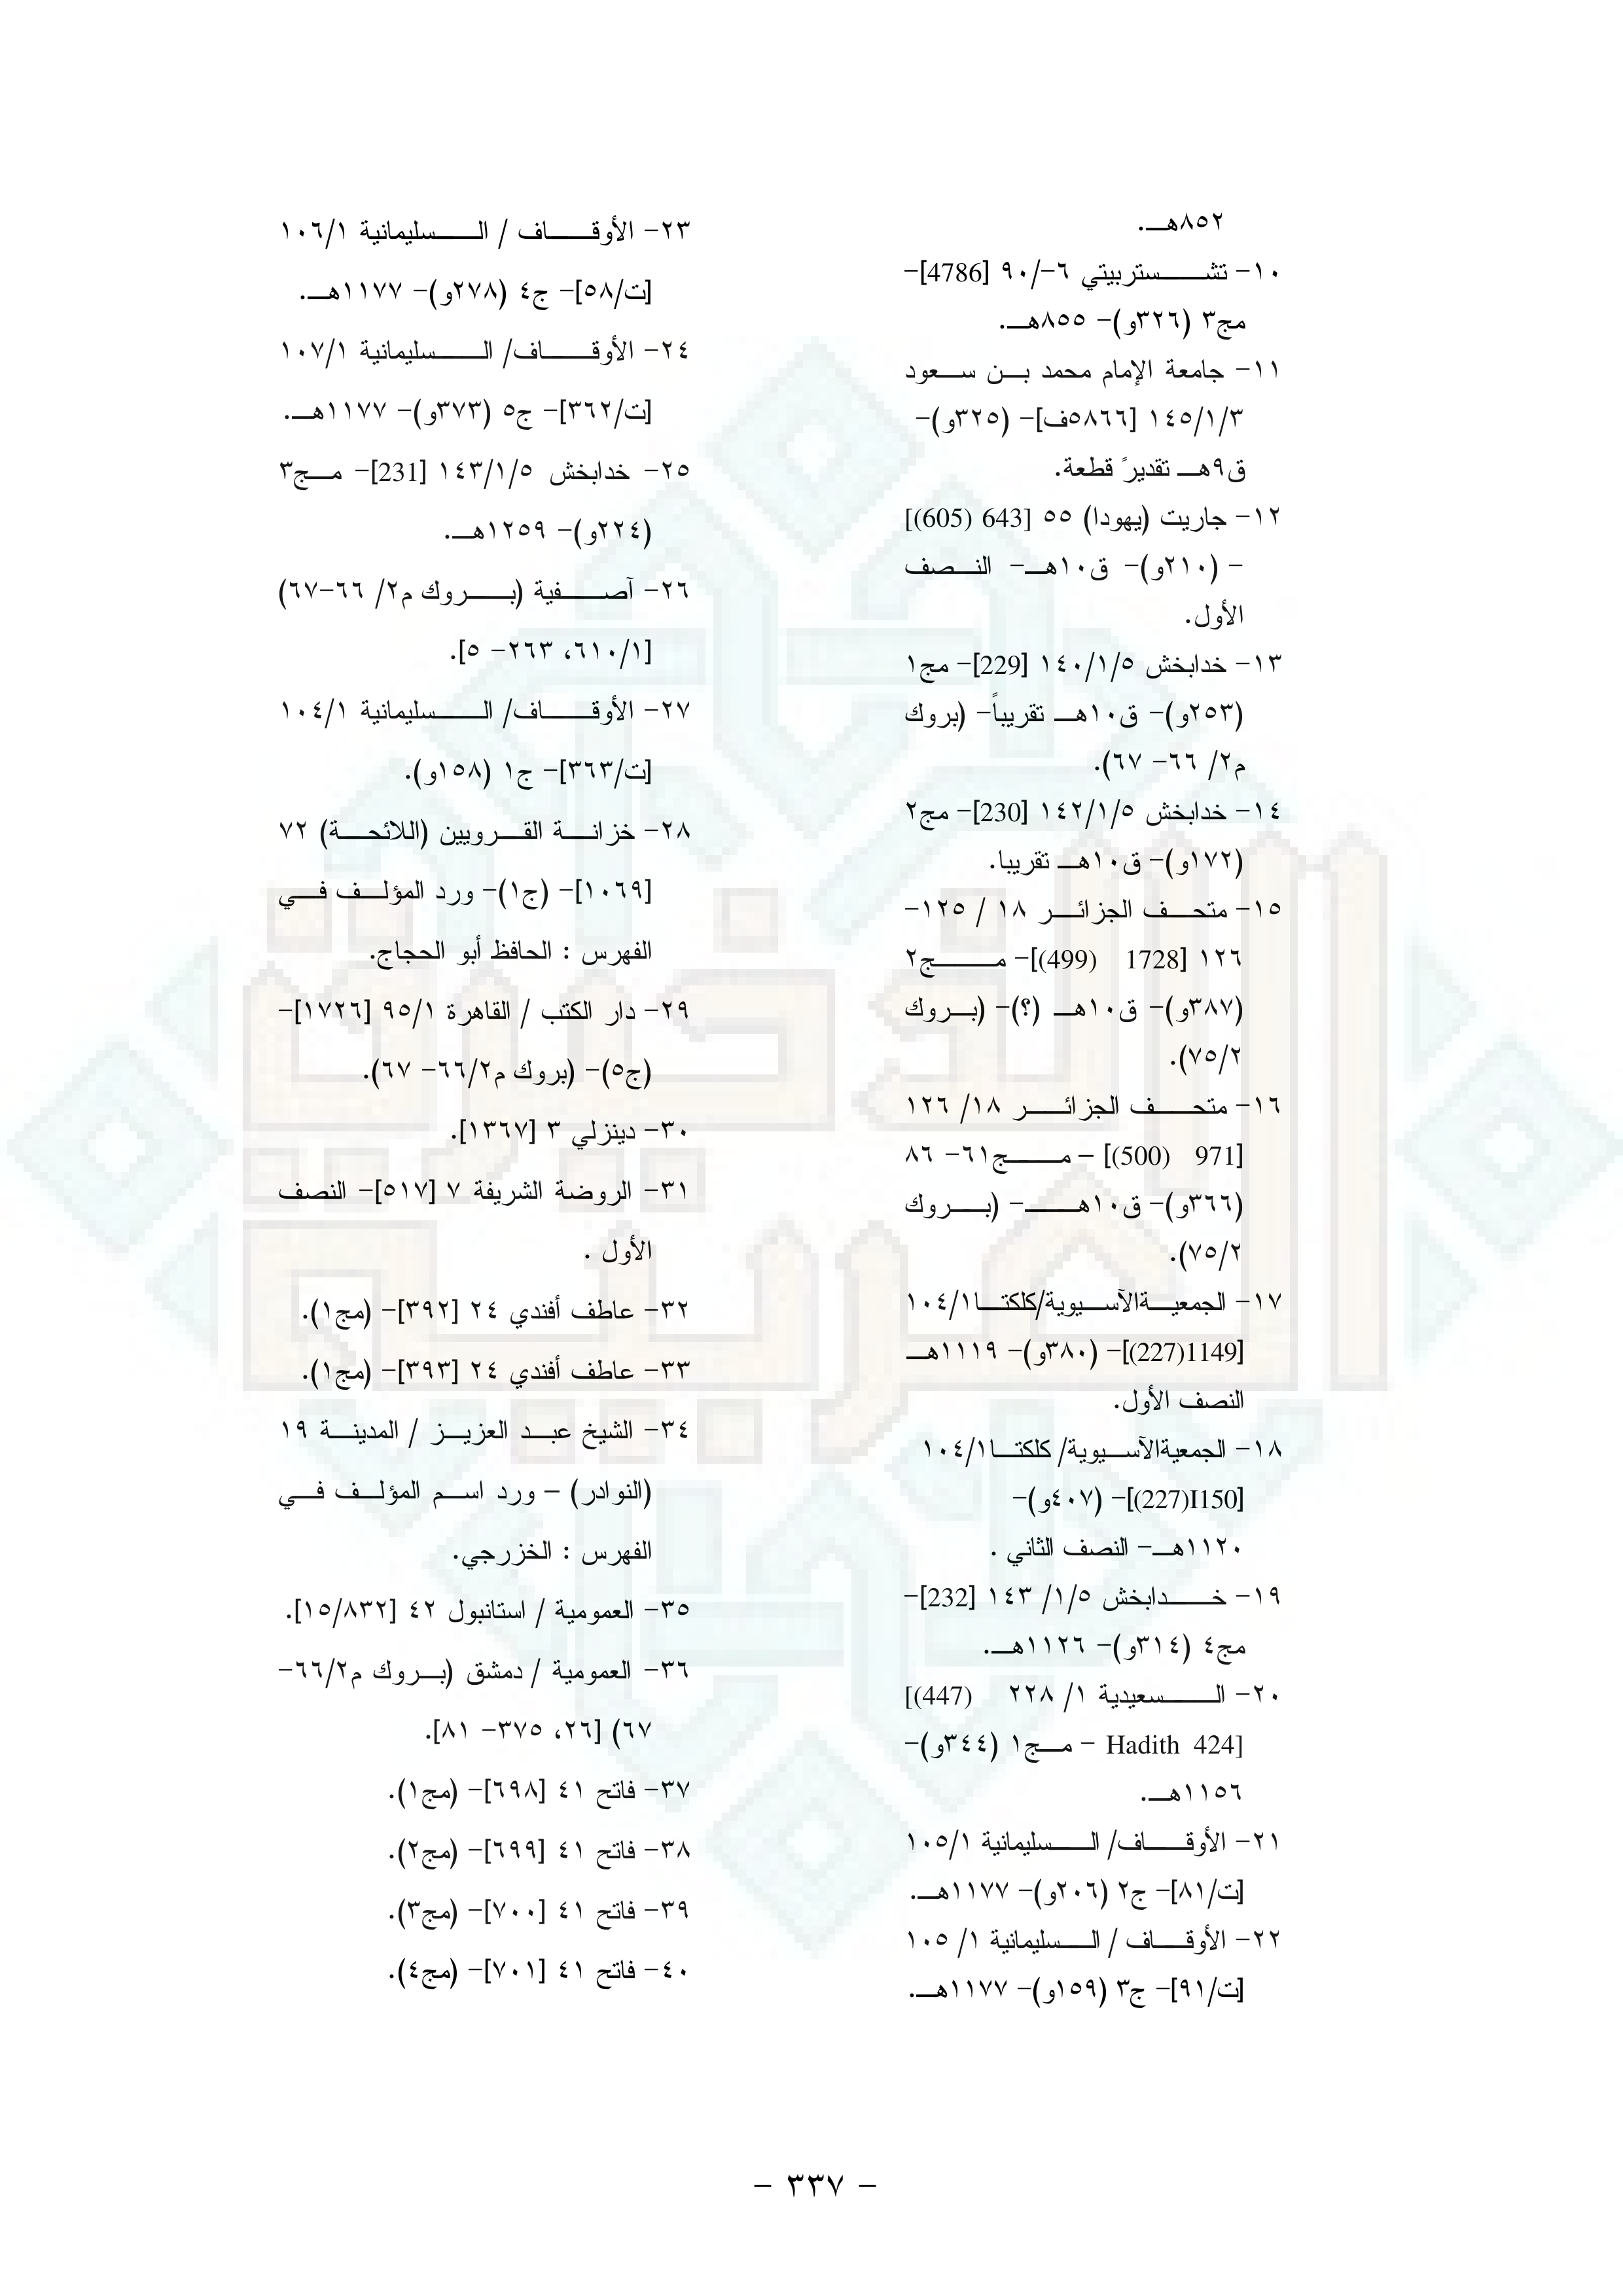 ٨٥٢هـ.
١٠- تشستربيتي ٦-/٩٠ [4786]-
مج٣ (٣٢٦و)- ٨٥٥هـ.
١١- جامعة الإمام محمد بن سعود
١٤٥/١/٣ [٥٨٦٦ف]- (٣٢٥و)-
ق٩هـ تقديرً قطعة.
١٢- جاريت (يهودا) ٥٥ [643 (605)]
- (٢١٠و)- ق١٠هـ- النصف
الأول.
١٣- خدابخش ١٤٠/١/٥ [229]- مج١
(٢٥٣و)- ق١٠هـ تقريباً- (بروك
م٢/ ٦٦- ٦٧).
١٤- خدابخش ١٤٢/١/٥ [230]- مج٢
(١٧٢و)- ق١٠هـ تقريبا.
١٥- متحف الجزائر ١٨ / ١٢٥-
١٢٦ [1728 (499)]- مج٢
(٣٨٧و)- ق١٠هـ (؟)- (بروك
٧٥/٢).
١٦- متحف الجزائر ١٨/ ١٢٦
[971 (500)] - مج٦١- ٨٦
(٣٦٦و)- ق١٠هـ- (بروك
٧٥/٢).
١٧- الجمعيةالآسيوية/كلكتا١٠٤/١
[1149(227)]- (٣٨٠و)- ١١١٩هـ
النصف الأول.
١٨- الجمعيةالآسيوية/ كلكتا١٠٤/١
[I150(227)]- (٤٠٧و)-
١١٢٠هـ- النصف الثاني .
١٩- خدابخش ١/٥/ ١٤٣ [232]-
مج٤ (٣١٤و)- ١١٢٦هـ.
٢٠- السعيدية ١/ ٢٢٨ (447)]
[Hadith 424 - مج١ (٣٤٤و)-
١١٥٦هـ.
٢١- الأوقاف/ السليمانية ١٠٥/١
[ت/٨١]- ج٢ (٢٠٦و)- ١١٧٧هـ.
٢٢- الأوقاف / السليمانية ١/ ١٠٥
[ت/٩١]- ج٣ (١٥٩و)- ١١٧٧هـ.
٢٣- الأوقاف / السليمانية ١٠٦/١
[ت/٥٨]- ج٤ (٢٧٨و)- ١١٧٧هـ.
٢٤- الأوقاف/ السليمانية ١٠٧/١
[ت/٣٦٢]- ج٥ (٣٧٣و)- ١١٧٧هـ.
٢٥- خدابخش ١٤٣/١/٥ [231]- مج٣
(٢٢٤و)- ١٢٥٩هـ.
٢٦- آصفية (بروك م٢/ ٦٦-٦٧)
[٦١٠/١، ٢٦٣- ٥].
٢٧- الأوقاف/ السليمانية ١٠٤/١
[ت/٣٦٣]- ج١ (١٥٨و).
٢٨- خزانة القرويين (اللائحة) ٧٢
[١٠٦٩]- (ج١)- ورد المؤلف في
الفهرس : الحافظ أبو الحجاج.
٢٩- دار الكتب / القاهرة ٩٥/١ [١٧٢٦]-
(ج٥)- (بروك م٦٦/٢- ٦٧).
٣٠- دينزلي ٣ [١٣٦٧].
٣١- الروضة الشريفة ٧ [٥١٧]- النصف
الأول .
٣٢- عاطف أفندي ٢٤ [٣٩٢]- (مج١).
٣٣- عاطف أفندي ٢٤ [٣٩٣]- (مج١).
٣٤- الشيخ عبد العزيز / المدينة ١٩
(النوادر) - ورد اسم المؤلف في
الفهرس : الخزرجي.
٣٥- العمومية / استانبول ٤٢ [١٥/٨٣٢].
٣٦- العمومية / دمشق (بروك م٦٦/٢-
٦٧) [٢٦، ٣٧٥- ٨١].
٣٧- فاتح ٤١ [٦٩٨]- (مج١).
٣٨- فاتح ٤١ [٦٩٩]- (مج٢).
٣٩- فاتح ٤١ [٧٠٠]- (مج٣).
٤٠- فاتح ٤١ [٧٠١]- (مج٤).
- ٣٣٧ -